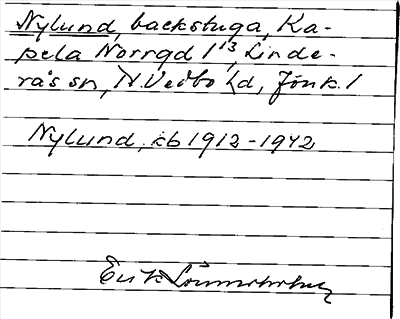 Nylund, backstuga, Ka-
pela Norrgd 1¹³, Linde-
rås sn, N. Vedbo hd, Jönk. l
Nylund, kb 1912-1942
Erik